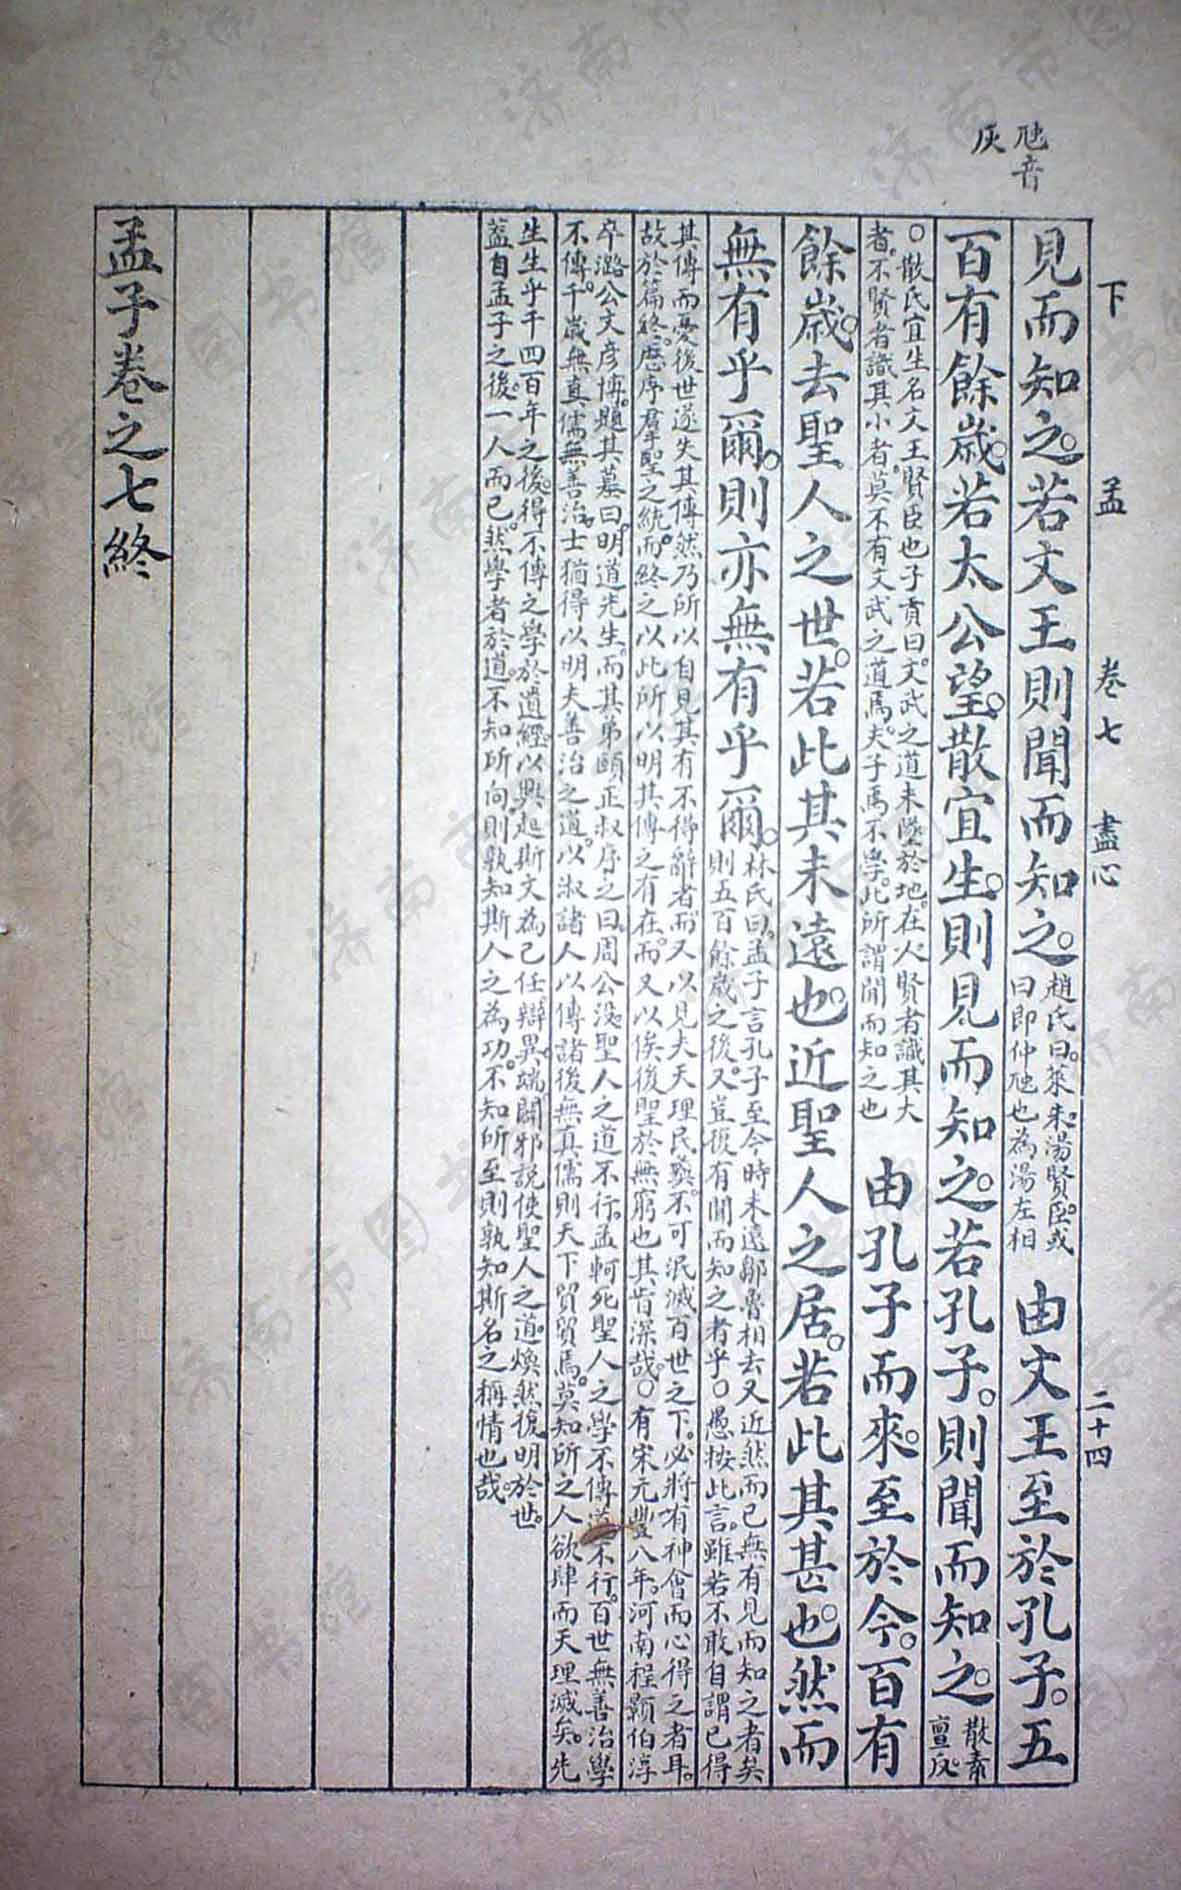 虺音
灰
下 孟 卷七 盡心 二十四
見而知之。若文王則聞而知之。趙氏曰。萊朱。湯賢臣。或
曰即仲虺也為湯左相 由文王至於孔子。五
百有餘歲。若太公望。散宜生。則見而知之。若孔子。則聞而知之。散素
亶反。
○散氏宜生名文王賢臣也子貢曰。文武之道未墜於地。在人。賢者識其大
者。不賢者識其小者。莫不有文武之道焉。夫子焉不學。此所謂聞而知之也 由孔子而來。至於今。百有
餘歲。去聖人之世。若此其未遠也。近聖人之居。若此其甚也。然而
無有乎爾。則亦無有乎爾。林氏曰。孟子言孔子至今時未遠鄒魯相去又近然而已無有見而知之者矣
則五百餘歲之後。又豈復有聞而知之者乎。○愚按此言。雖若不敢自謂已得
其傳而憂後世遂失其傳然乃所以自見其有不得辭者而又以見夫天理民彝。不可泯滅百世之下。必將有神會而心得之者耳。
故於篇終。歷序羣聖之統。而終之以此所以明其傳之有在。而又以俟後聖於無窮也其旨深哉。○有宋元豐八年。河南程顥伯淳
卒。潞公文彥博。題其墓曰。明道先生。而其弟頤正叔序之曰。周公沒聖人之道不行。孟軻死聖人之學不傳道不行。百世無善治學
不傳。千歲無真儒無善治。士猶得以明夫善治之道。以淑諸人以傳諸後無真儒則天下貿貿焉。莫知所之人欲肆而天理滅矣。先
生生乎千四百年之後。得不傳之學於遺經。以興起斯文為己任辯異端。闢邪說使聖人之道。煥然復明於世。
蓋自孟子之後。一人而已。然學者於道。不知所向。則孰知斯人之為功。不知所至則孰知斯名之稱情也哉。
孟子卷之七終